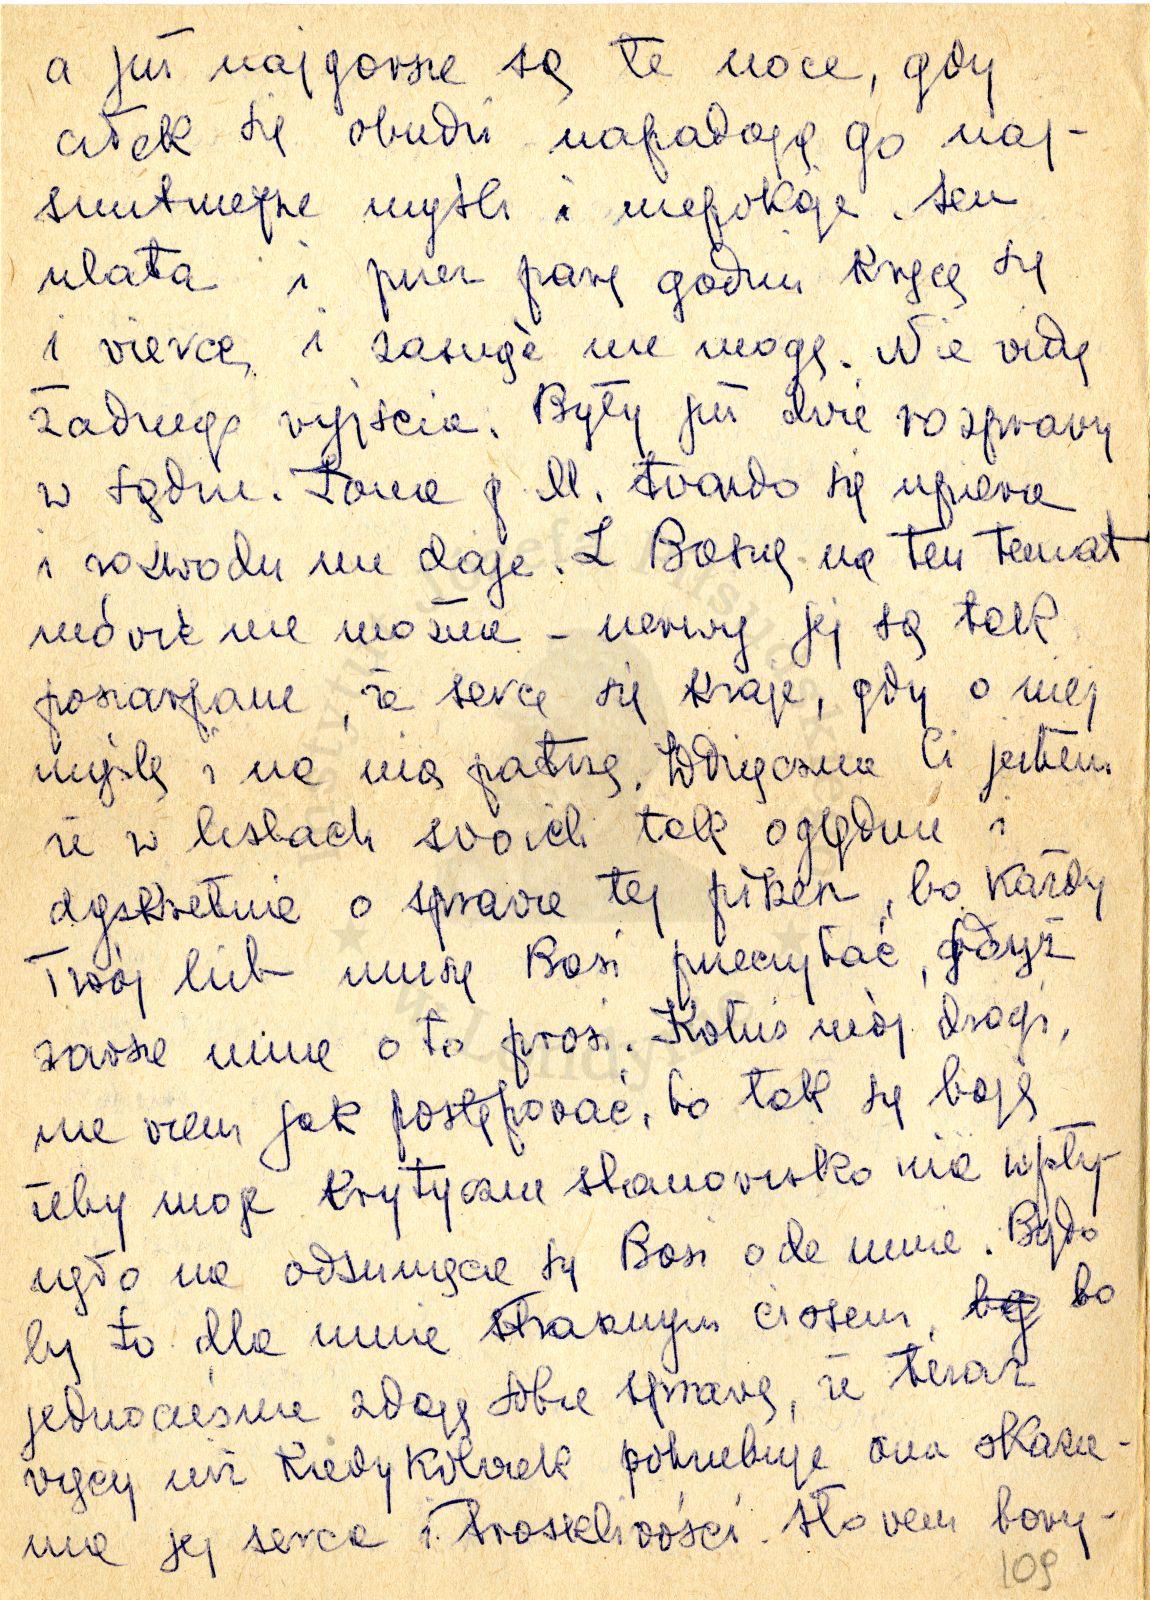 a już najgorsze są te noce, gdy
człek się obudzi napadają go naj-
smutniejsze myśli i niepokoje. Sen
ulata i przez parę godzin kręcę się
i viercę i zasnąć nie mogę. Nie vidzę
żadnego vyjścia. Były już dvie rozpravy
w sądzie. Żona p M. tvardo się upiera
i rozwodu nie daje. Z Basią na ten temat
móvić nie można – nerwy jej są tak
poszarpane, że serce się kraje, gdy o niej
myślę i na nią patrzę. Wdzięczna Ci jestem
że w listach svoich tak oględnie i
dyskretnie o spravie tej piszesz, bo każdy
Twój list muszę Basi przeczytać, gdyż
zavsze mnie o to prosi. Kotuś mój drogi,
nie viem jak postępovać, bo tak się boję
żeby moje krytyczne stanovisko nie wpły-
nęło na odsunięcie się Basi ode mnie. Było
by to dla mnie strasznym ciosem, bo
jednocześnie zdaję sobie spravę, że teraz
vięcej niż kiedykolviek potrzebuje ona okaza-
nia jej serca i troskliwości. Słovem bory-
109
Instytut Józefa Piłsudskiego
w Londynie